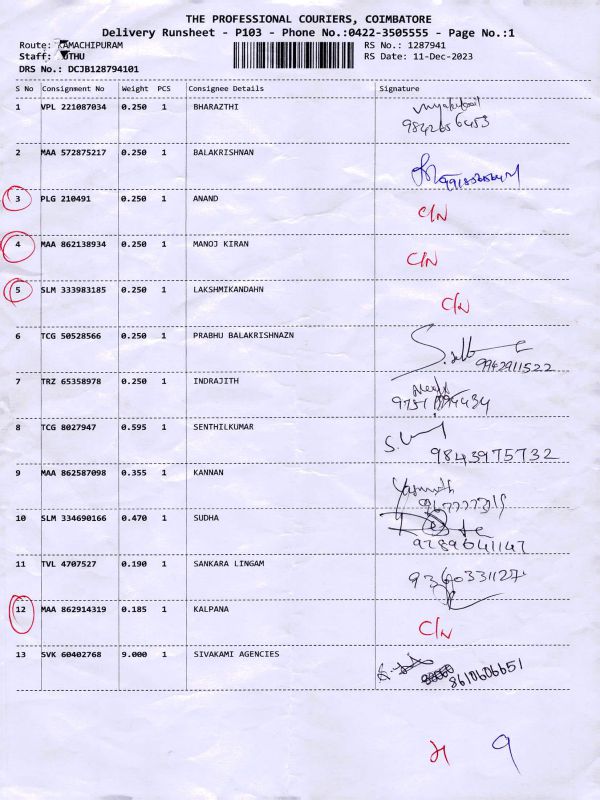 THE PROFESSIONAL COURIERS, COIMBATORE
Delivery Runsheet - P103 - Phone No.:0422-3505555 - Page No.:1
Route: RAMACHIPURAM RS No.: 1287941
Staff: MUTHU RS Date: 11-Dec-2023
DRS No.: DCJB128794101
S No Consignment No Weight PCS Consignee Details Signature
1 VPL 221087034 0.250 1 BHARAZTHI
9842656453
2 MAA 572875217 0.250 1 BALAKRISHNAN
3 PLG 210491 0.250 1 ANAND C/N
4 MAA 862138934 0.250 1 MANOJ KIRAN C/N
5 SLM 333983185 0.250 1 LAKSHMIKANDAHN C/N
6 TCG 50528566 0.250 1 PRABHU BALAKRISHNAZN
9942911522
7 TRZ 65358978 0.250 1 INDRAJITH
8 TCG 8027947 0.595 1 SENTHILKUMAR
9843975732
9 MAA 862587098 0.355 1 KANNAN
10 SLM 334690166 0.470 1 SUDHA
9789641147
11 TVL 4707527 0.190 1 SANKARA LINGAM 9360331127
12 MAA 862914319 0.185 1 KALPANA C/N
13 SVK 60402768 9.000 1 SIVAKAMI AGENCIES
8610606651
9